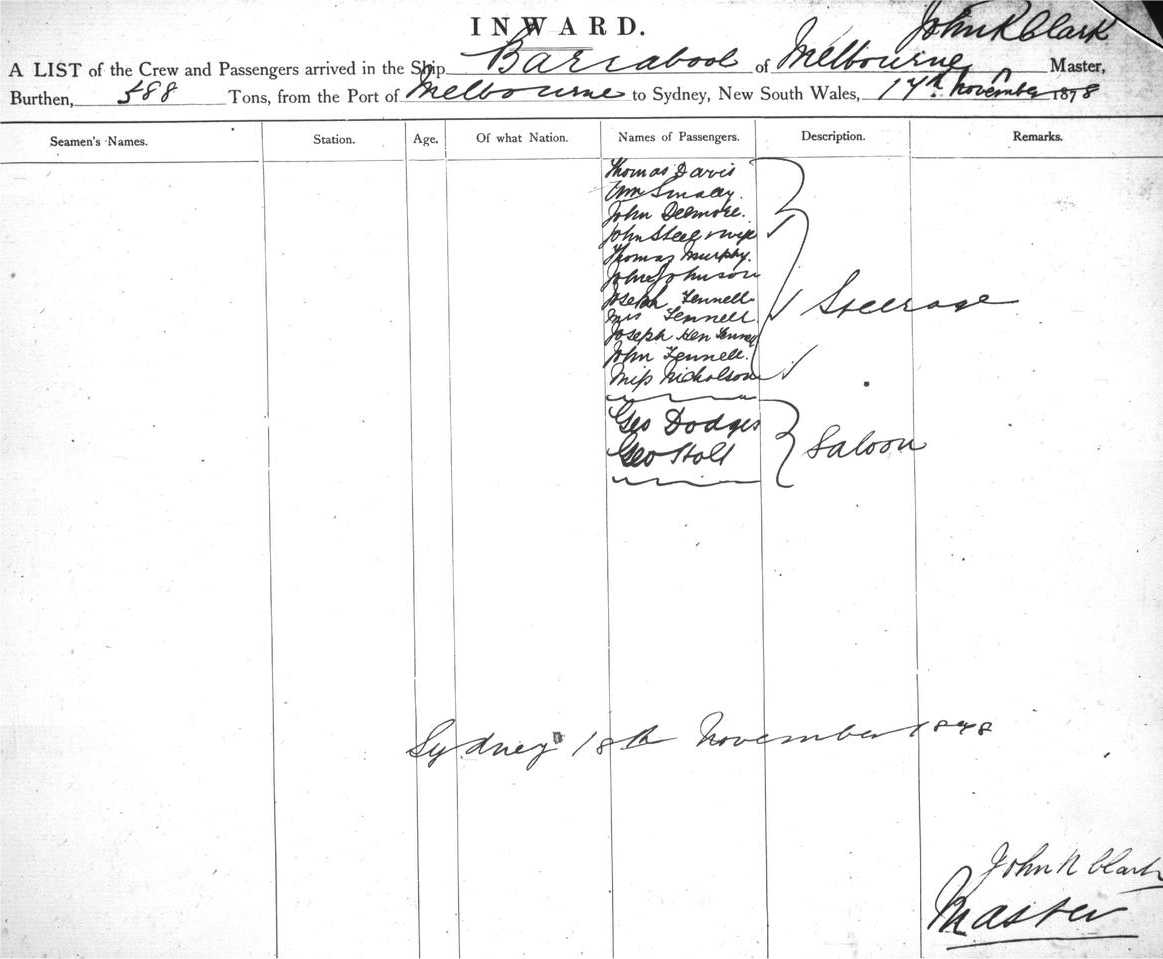 INWARD.
John R Clark
A LIST of the Crew and Passengers arrived in the Ship Barrabool of Melbourne Master,
Burthen, 588 Tons, from the Port of Melbourne to Sydney, New South Wales, 17th November 1878
Seamen's Names. Station. Age. Of what Nation. Names of Passengers. Description. Remarks.
Thomas Davis
Wm
John Delmore.
John Steel & wife
Thomas Murphy.
John Johnson
Joseph Fennell
Mrs Fennell
Joseph Hen Fennell
John Fennell.
Steerage
Miss Nicholson
Geo Dodges
Geo Holt
Saloon
Sydney 18th November 1878
John R Clark
Master